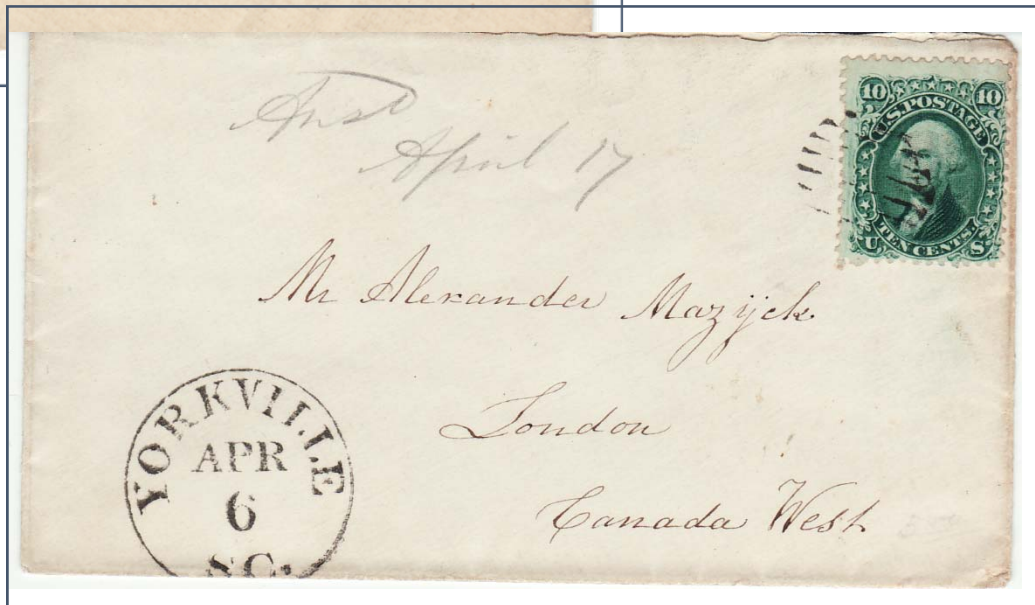 Ansd
April 17
10 10
U.S. POSTAGE
TEN CENTS.
U S
Mr Alexander Mazijck
London
Canada West
YORKVILLE
APR
6
SC.